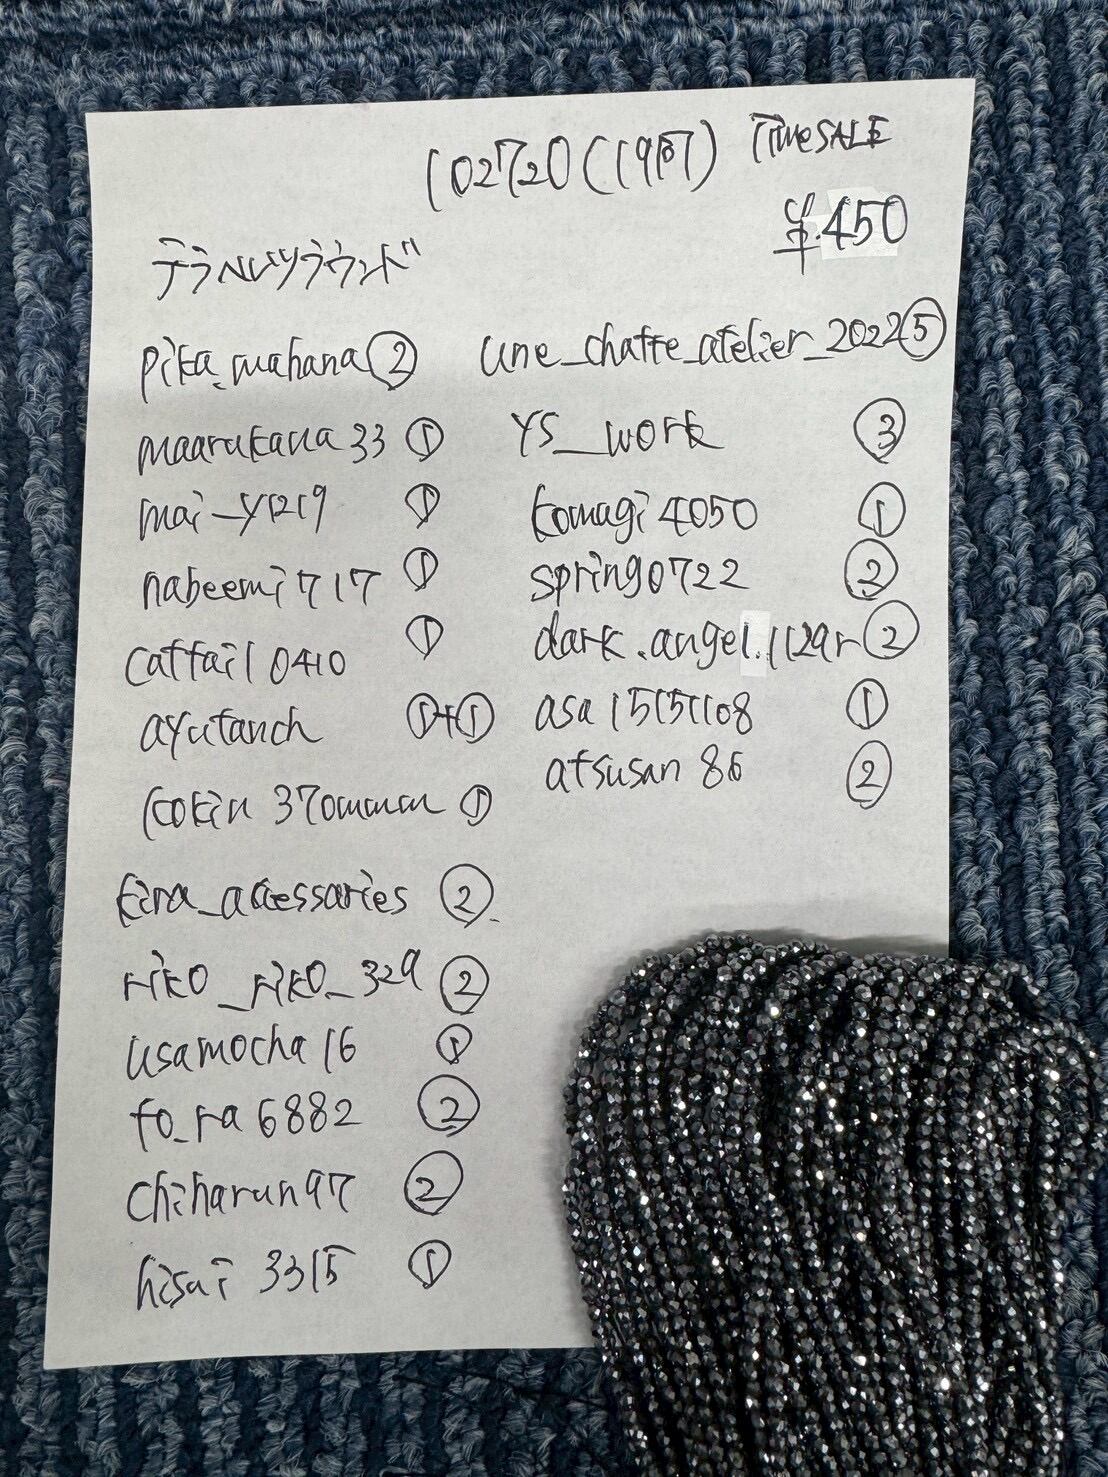 102720(19時) TimeSALE
¥450
テラヘルツラウンド
pika_mahana ②
maarukana33 ①
mai_y1219 ①
nabeemi717 ①
cattail0410 ①
ayutanch ①+①
kokin370mmm ①
kira_accessaries ②
riko_riko_329 ②
usamocha16 ①
fo_ra6882 ②
chiharun97 ②
hisai3315 ①
une_chatte_atelier_2022 ⑤
YS_work ③
komagi4050 ①
spring0722 ②
dark.angel.1129r ②
asa15151108 ①
atsusan86 ②